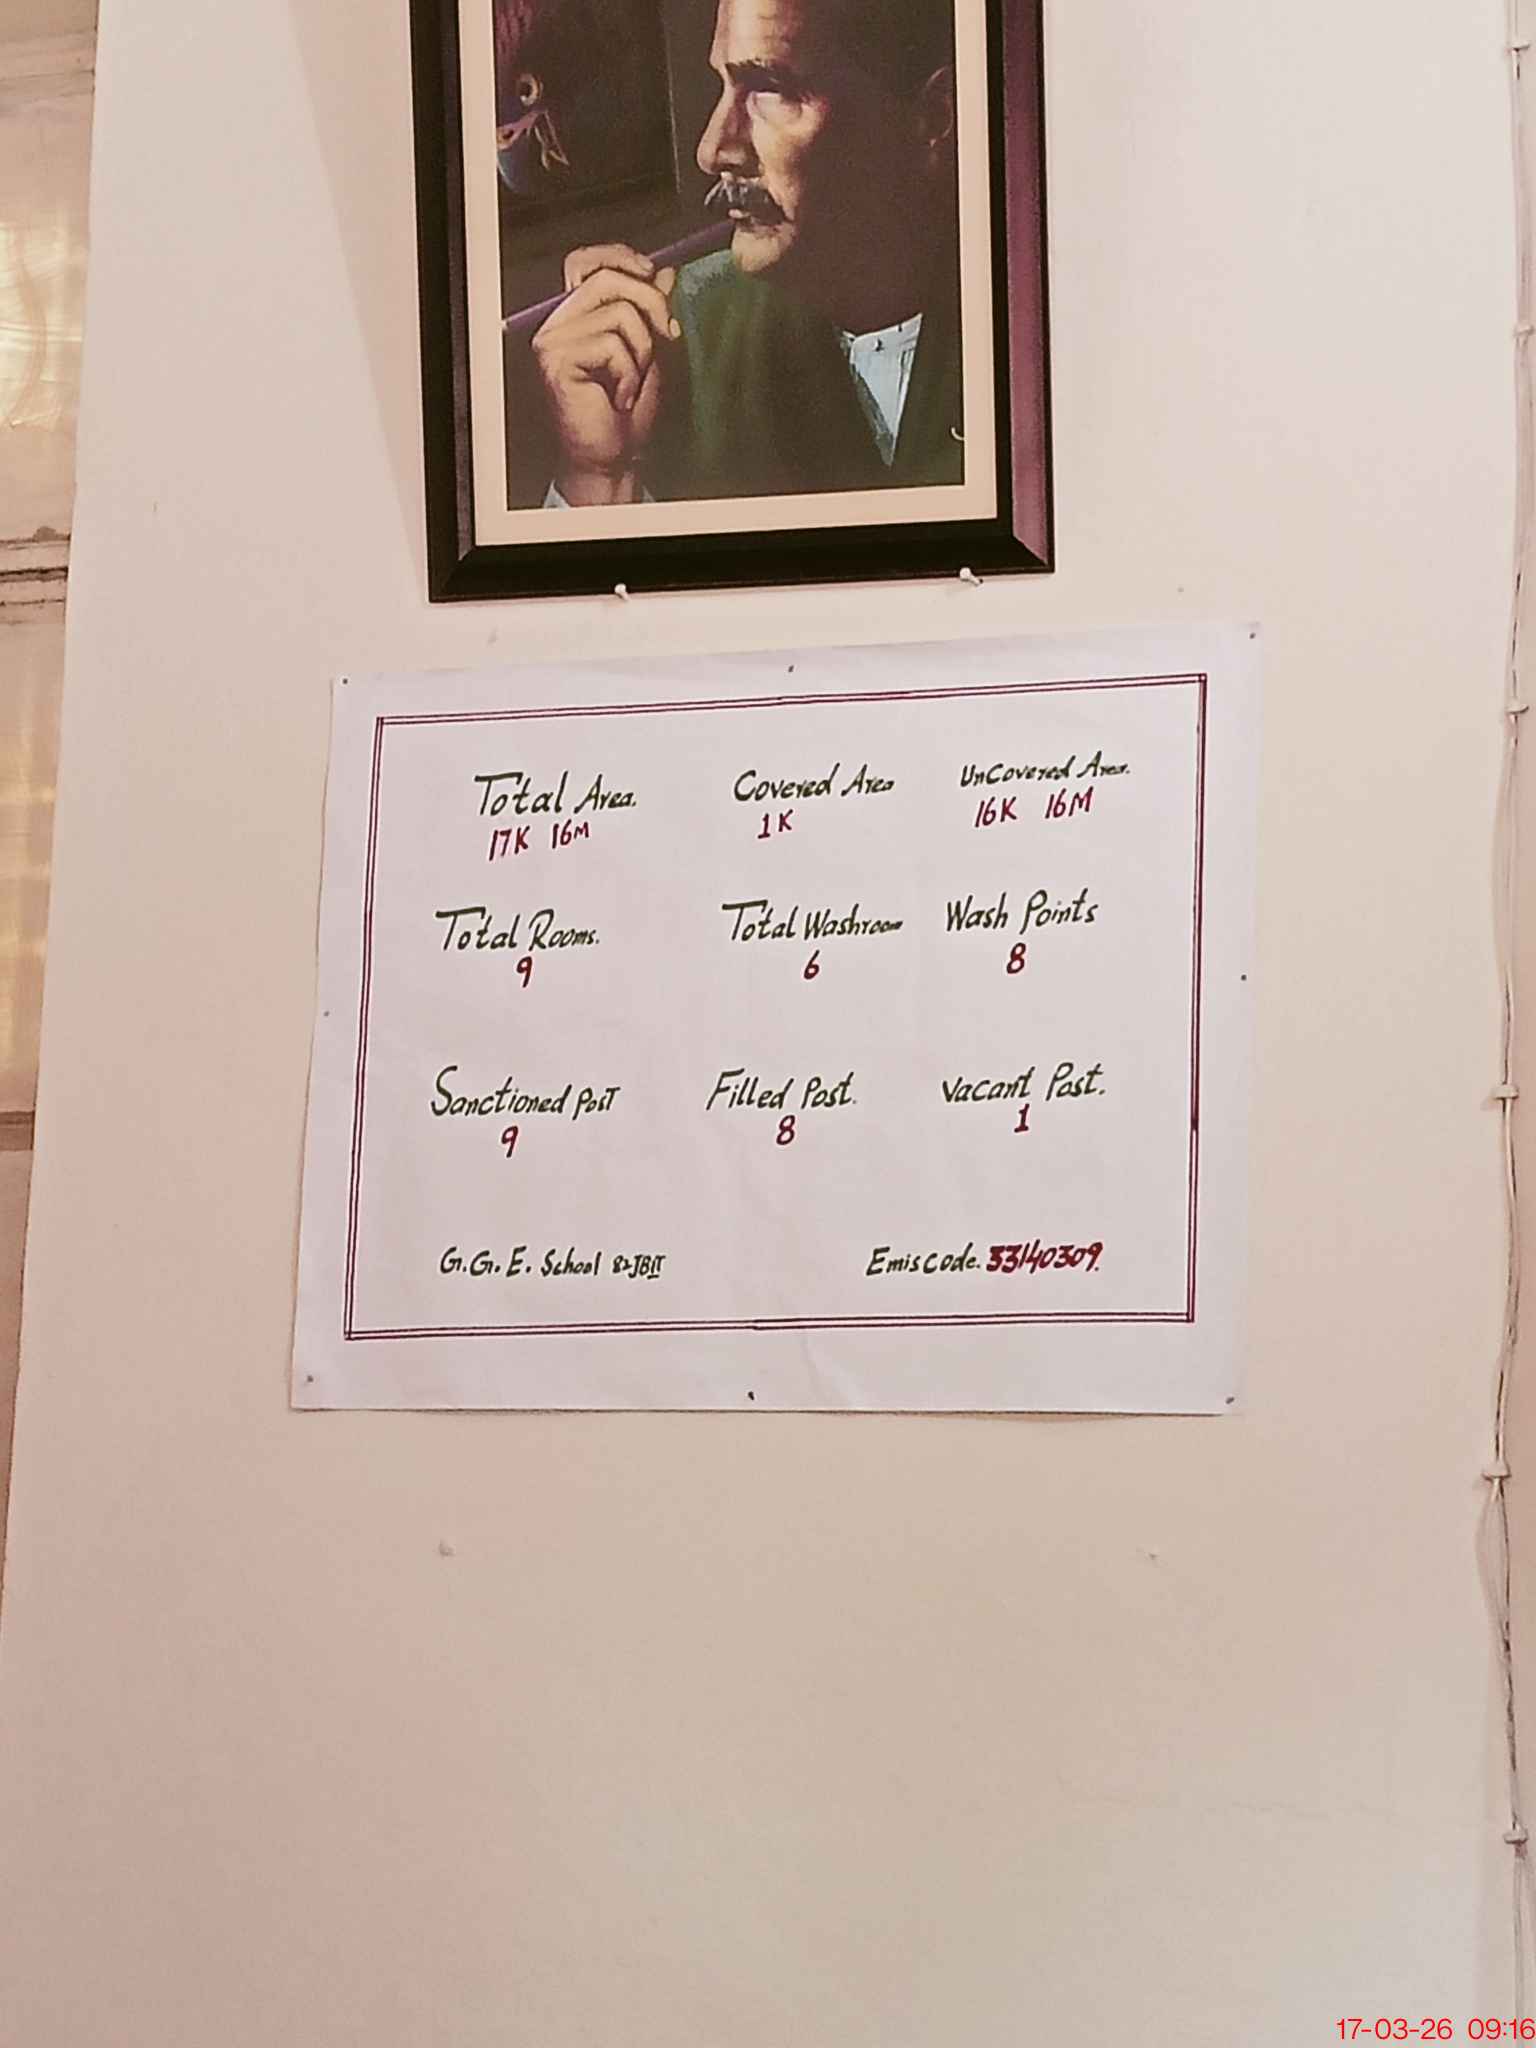 Total Area. Covered Area UnCovered Area.
17K 16M 1K 16K 16M
Total Rooms. Total Washroom Wash Points
9 6 8
Sanctioned Post Filled Post. Vacant Post.
9 8 1
G.G.E. School 82JBII Emis code. 33140309.
17-03-26 09:16